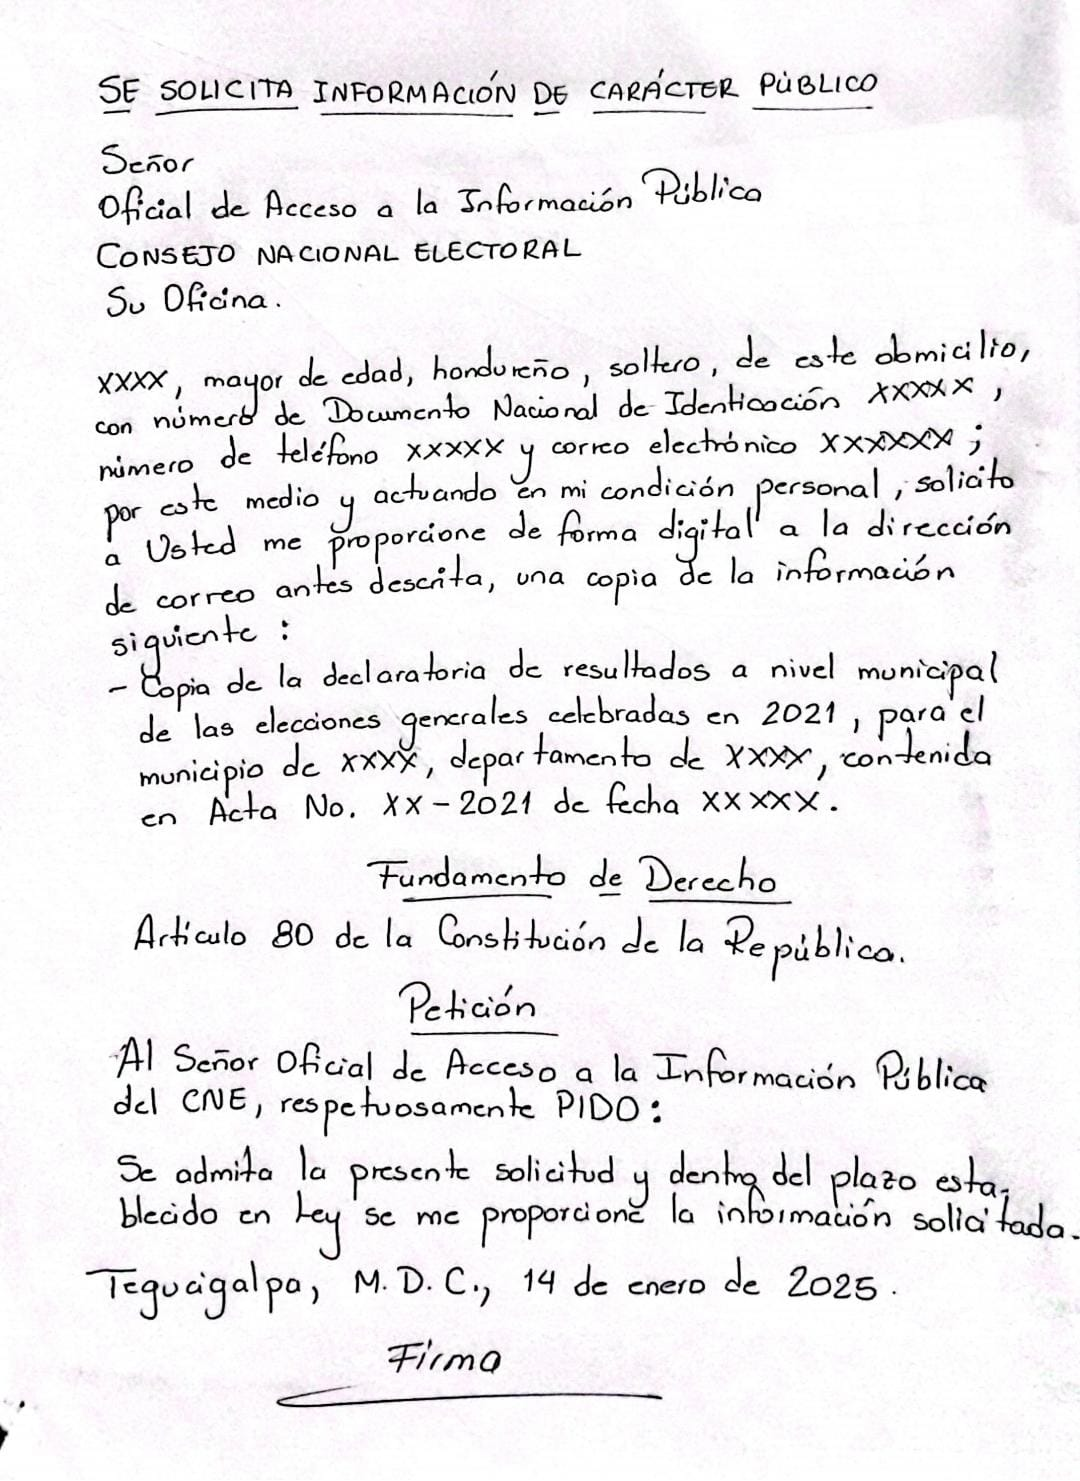 SE SOLICITA INFORMACIÓN DE CARÁCTER PÚBLICO
Señor
Oficial de Acceso a la Información Pública
CONSEJO NACIONAL ELECTORAL
Su Oficina.
XXXX, mayor de edad, hondureño, soltero, de este domicilio,
con número de Documento Nacional de Identicación XXXXX,
número de teléfono XXXXX y correo electrónico XXXXXX;
por este medio y actuando en mi condición personal, solicito
a Usted me proporcione de forma digital a la dirección
de correo antes descrita, una copia de la información
siguiente:
- Copia de la declaratoria de resultados a nivel municipal
de las elecciones generales celebradas en 2021, para el
municipio de XXXX, departamento de XXXX, contenida
en Acta No. XX-2021 de fecha XXXXX.
Fundamento de Derecho
Artículo 80 de la Constitución de la República.
Petición
Al Señor Oficial de Acceso a la Información Pública
del CNE, respetuosamente PIDO:
Se admita la presente solicitud y dentro del plazo esta-
blecido en Ley se me proporcione la información solicitada.
Tegucigalpa, M.D.C., 14 de enero de 2025.
Firma